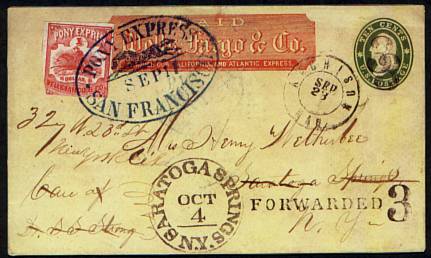 PAID
Wells, Fargo & Co.
CALIFORNIA AND ATLANTIC EXPRESS.
TEN CENTS
U.S. POSTAGE
PONY EXPRESS
WELLS, FARGO & CO
PONY EXPRESS
SEP
SAN FRANCISCO
ATCHISON
SEP
23
KAN.
32 W 23 St
Henry
Care of
Strong
Saratoga Springs
N. Y.
SARATOGA SPRINGS. N.Y.
OCT
4
FORWARDED
3